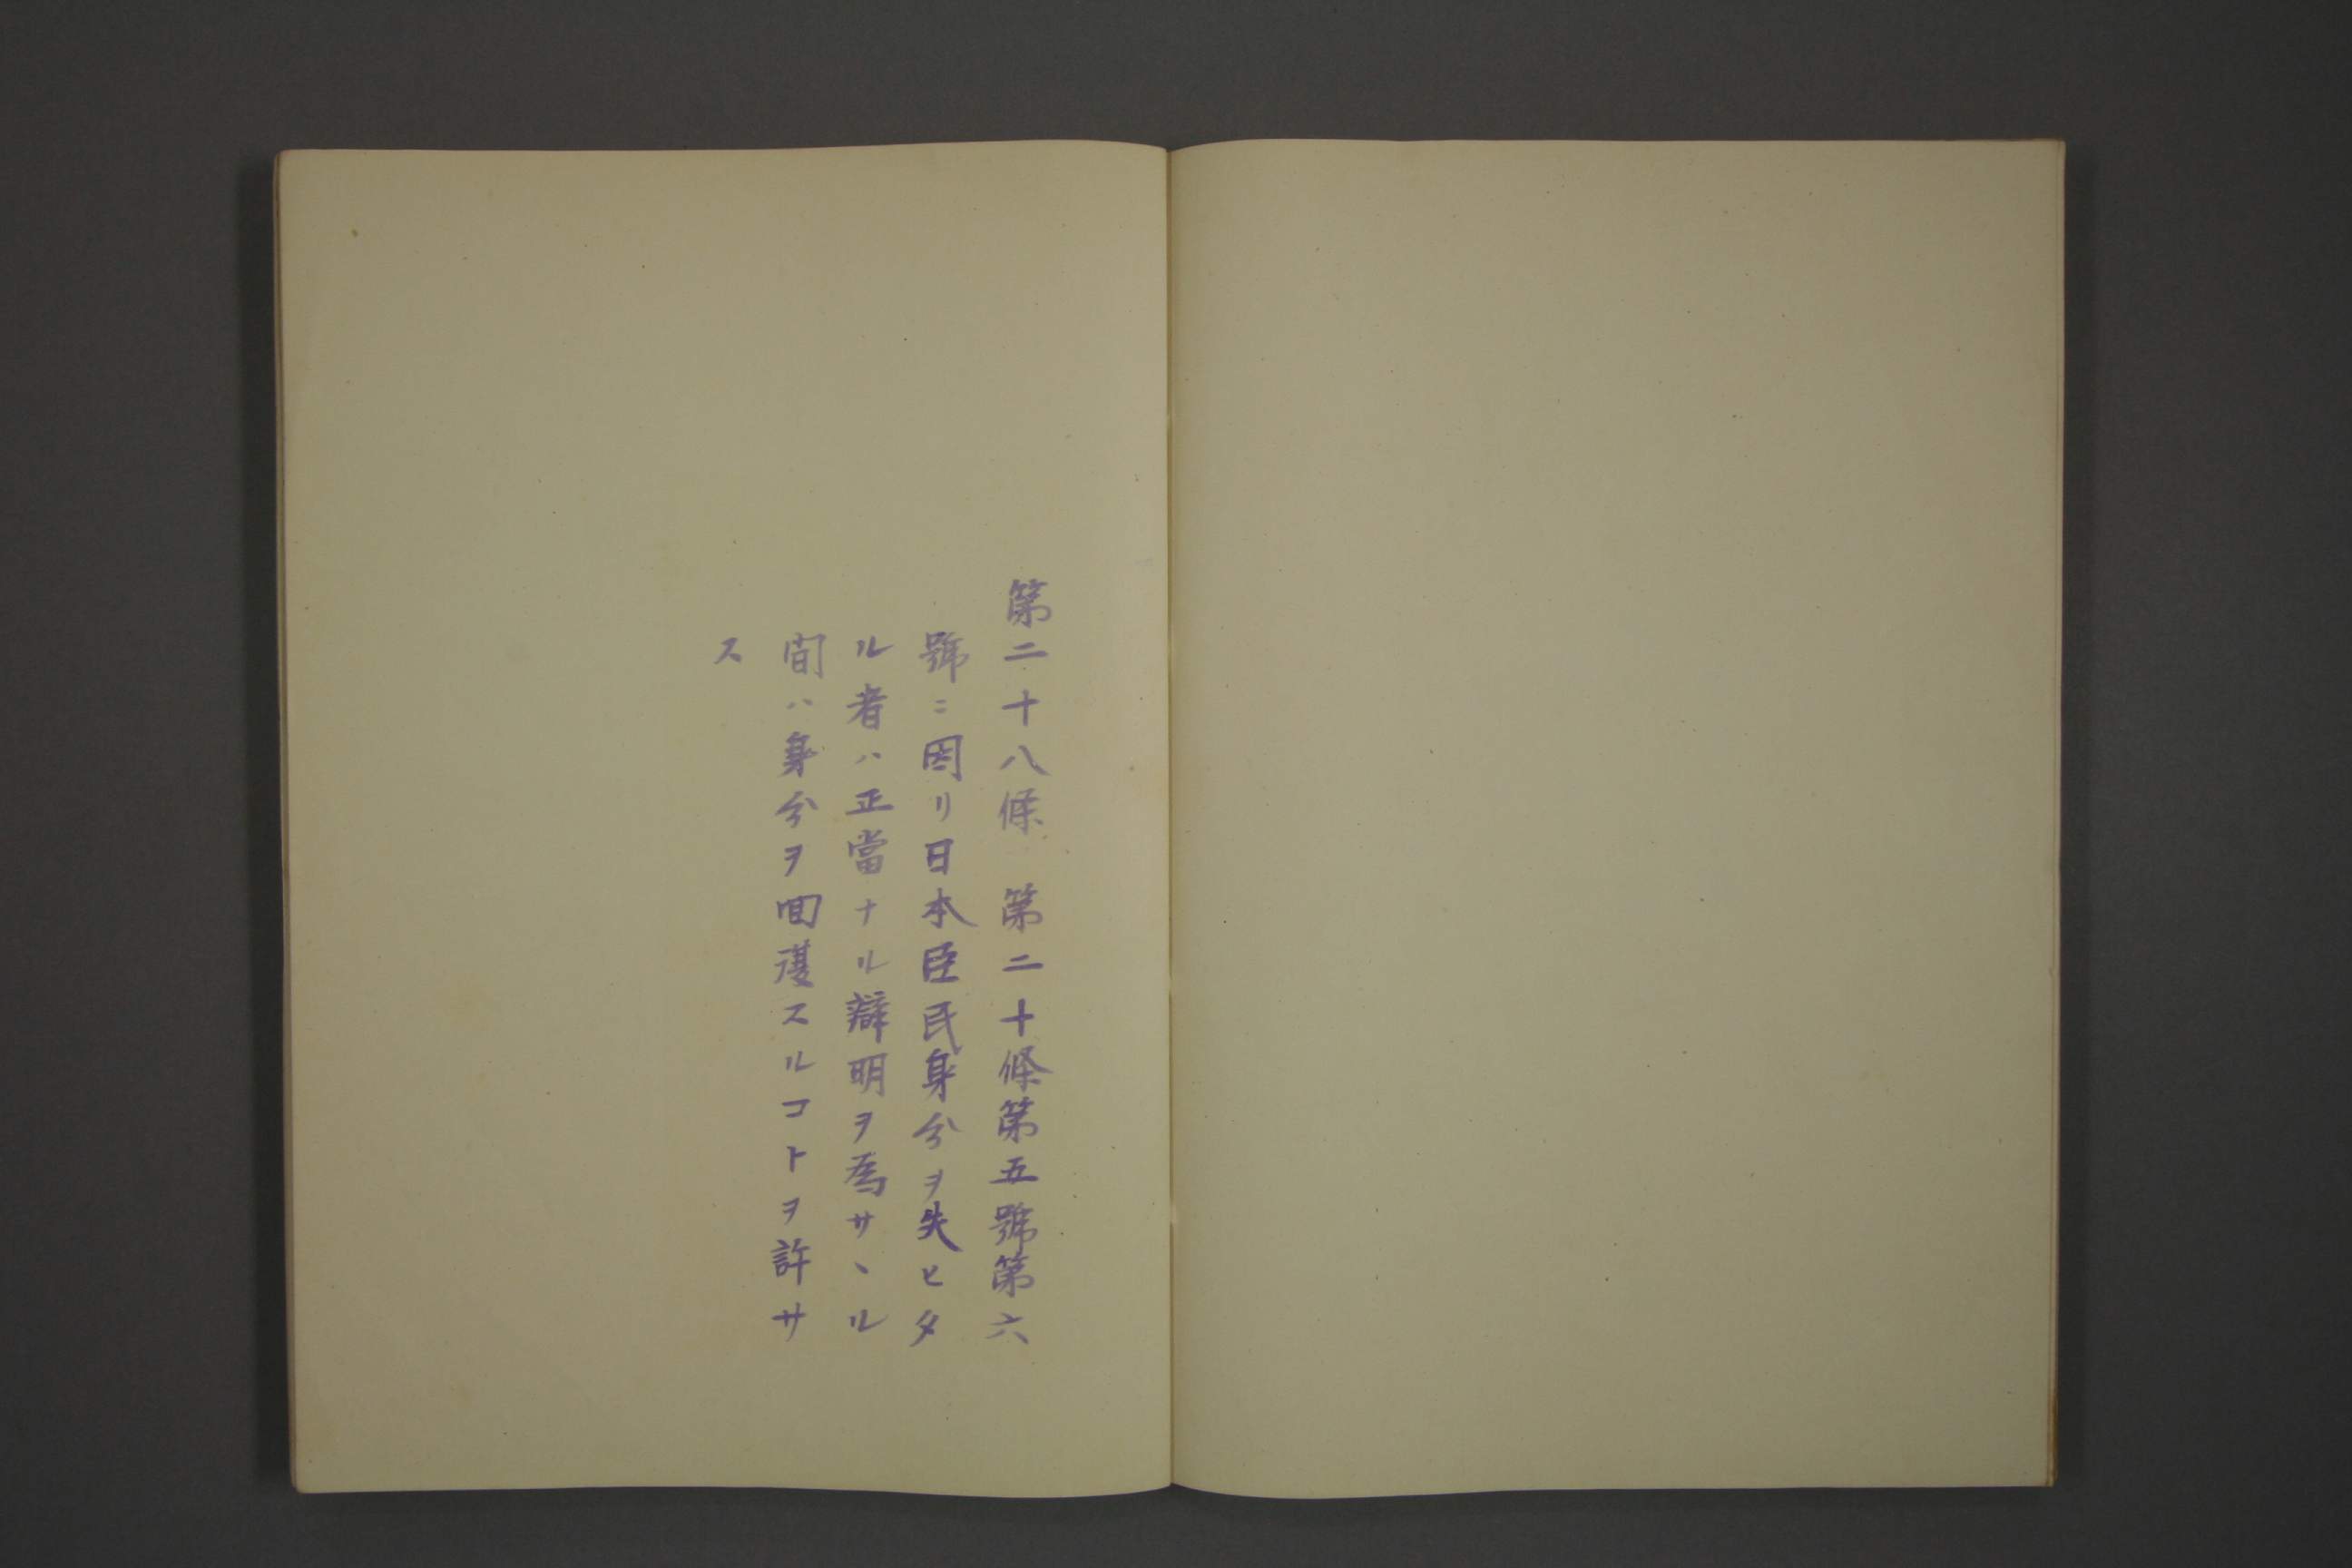 第二十八條　第二十條第五號第六
號ニ因リ日本臣民身分ヲ失ヒタ
ル者ハ正當ナル辯明ヲ爲サヽル
間ハ身分ヲ回復スルコトヲ許サ
ス